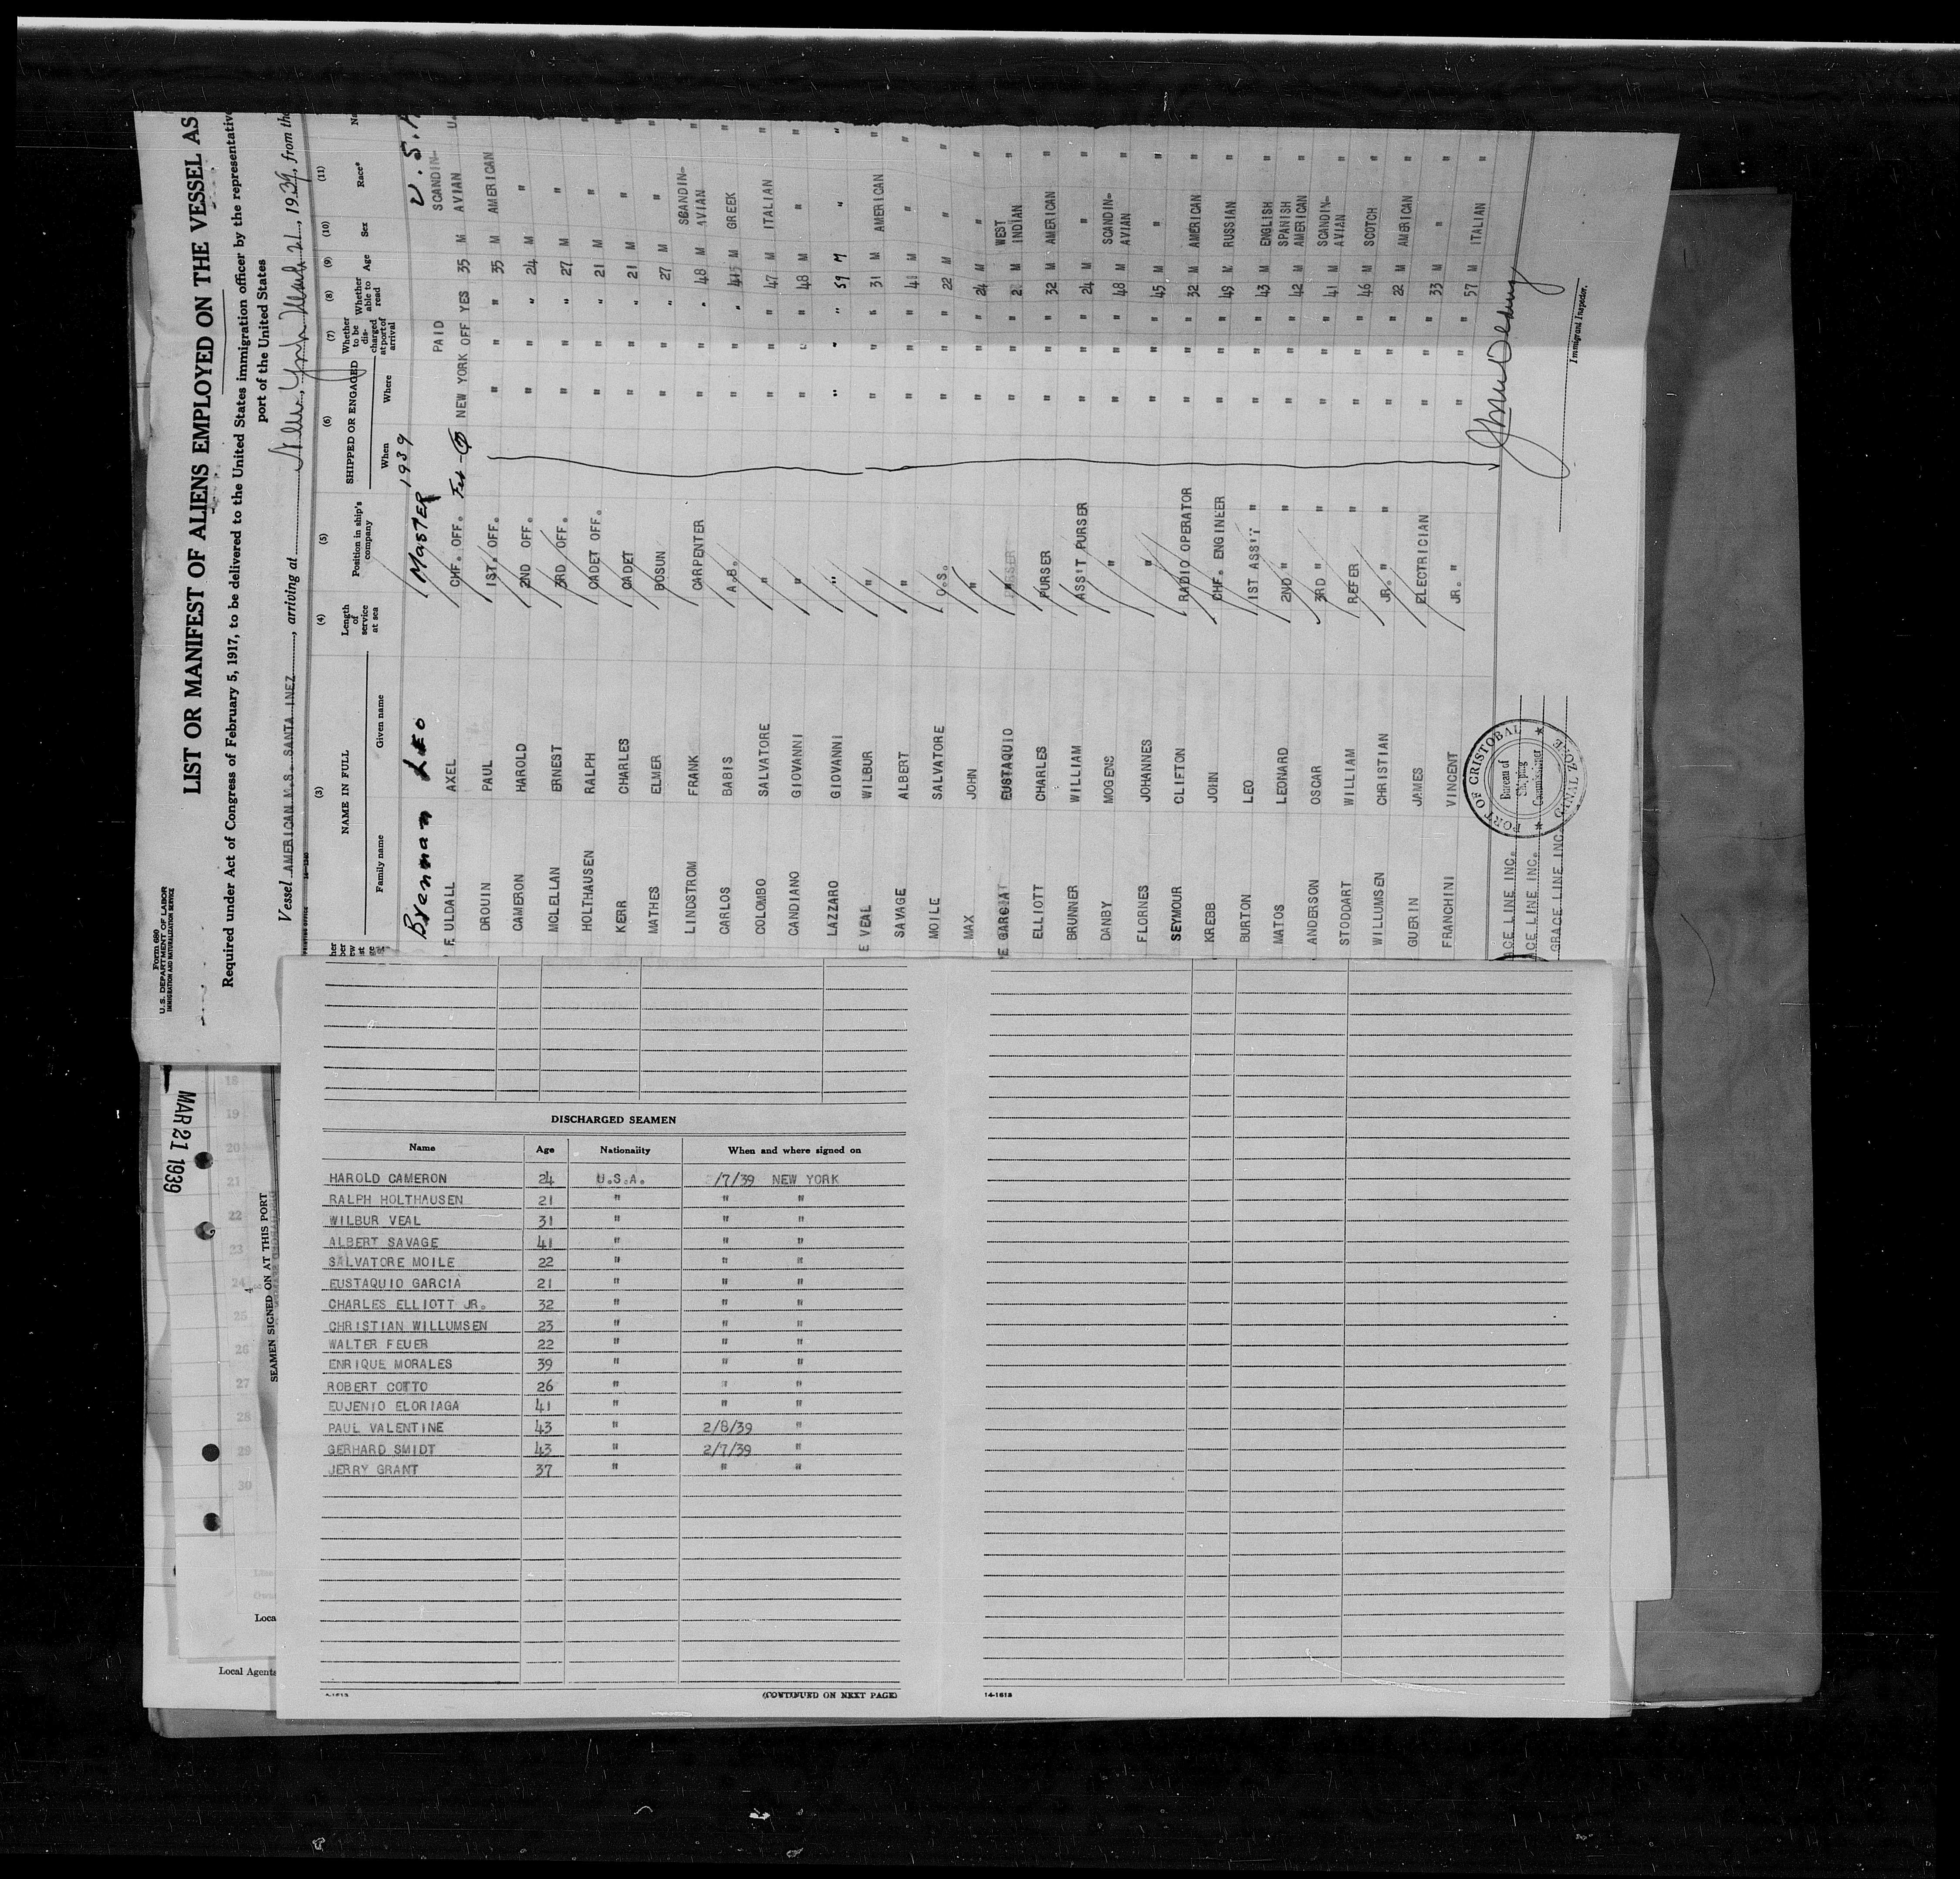 Form 680
U.S. DEPARTMENT OF LABOR
IMMIGRATION AND NATURALIZATION SERVICE
LIST OR MANIFEST OF ALIENS EMPLOYED ON THE VESSEL AS
Required under Act of Congress of February 5, 1917, to be delivered to the United States immigration officer by the representative
port of the United States
Vessel AMERICAN M.S. SANTA INEZ, arriving at New York March 21, 1939, from the
(3) (4) (5) (6) (7) (8) (9) (10) (11)
NAME IN FULL Length of service at sea Position in ship's company SHIPPED OR ENGAGED Whether to be discharged at port of arrival Whether able to read Age Sex Race*
Family name Given name When Where
Brennan Leo Master 1939 U.S.A
F. ULDALL AXEL CHF. OFF. Feb NEW YORK PAID OFF YES 35 M SCANDIN-AVIAN U.
DROUIN PAUL 1ST. OFF. " " " 35 M AMERICAN
CAMERON HAROLD 2ND OFF. " " " 24 M " "
MCLELLAN ERNEST 3RD OFF. " " " 27 M " "
HOLTHAUSEN RALPH CADET OFF. " " " 21 M " "
KERR CHARLES CADET " " " 21 M " "
MATHES ELMER BOSUN " " " 27 M " "
LINDSTROM FRANK CARPENTER " " " 48 M SCANDIN-AVIAN "
CARLOS BABIS A.B. " " " M GREEK "
COLOMBO SALVATORE " " " " 47 M ITALIAN "
CANDIANO GIOVANNI " " " " 48 M " "
LAZZARO GIOVANNI " " " " 59 M " "
E VEAL WILBUR " " " " 31 M AMERICAN "
SAVAGE ALBERT " " " " 41 M " "
MOILE SALVATORE O.S. " " " 22 M " "
MAX JOHN " " " " 24 M " "
E GARCIA EUSTAQUIO " " " " M WEST INDIAN "
ELLIOTT CHARLES PURSER " " " 32 M AMERICAN "
BRUNNER WILLIAM ASS'T PURSER " " " 24 M " "
DANBY MOGENS " " " " 48 M SCANDIN-AVIAN "
FLORNES JOHANNES " " " " 45 M " "
SEYMOUR CLIFTON RADIO OPERATOR " " " 32 M AMERICAN "
KREBB JOHN CHF. ENGINEER " " " 49 M RUSSIAN "
BURTON LEO 1ST ASS'T " " " " 43 M ENGLISH "
MATOS LEONARD 2ND " " " " " 42 M SPANISH AMERICAN "
ANDERSON OSCAR 3RD " " " " " 41 M SCANDIN-AVIAN "
STODDART WILLIAM REFER " " " " 46 M SCOTCH "
WILLUMSEN CHRISTIAN JR. " " " " " 22 M AMERICAN "
GUERIN JAMES ELECTRICIAN " " " 33 M " "
FRANCHINI VINCENT JR. " " " " 57 M ITALIAN "
ACE LINE INC.
ACE LINE INC.
GRACE LINE INC.
PORT OF CRISTOBAL
Bureau of
Shipping
Commissioner
CANAL ZONE
Immigrant Inspector.
MAR 21 1939
SEAMEN SIGNED ON AT THIS PORT
4
18
19
20
21
22
23
24
25
26
27
28
29
30
Loca
Local Agents
DISCHARGED SEAMEN
Name Age Nationality When and where signed on
HAROLD CAMERON 24 U.S.A. /7/39 NEW YORK
RALPH HOLTHAUSEN 21 " " "
WILBUR VEAL 31 " " "
ALBERT SAVAGE 41 " " "
SALVATORE MOILE 22 " " "
EUSTAQUIO GARCIA 21 " " "
CHARLES ELLIOTT JR. 32 " " "
CHRISTIAN WILLUMSEN 23 " " "
WALTER FEUER 22 " " "
ENRIQUE MORALES 39 " " "
ROBERT COTTO 26 " " "
EUJENIO ELORIAGA 41 " " "
PAUL VALENTINE 43 " 2/8/39 "
GERHARD SMIDT 43 " 2/7/39 "
JERRY GRANT 37 " " "
(CONTINUED ON NEXT PAGE)
14-1613